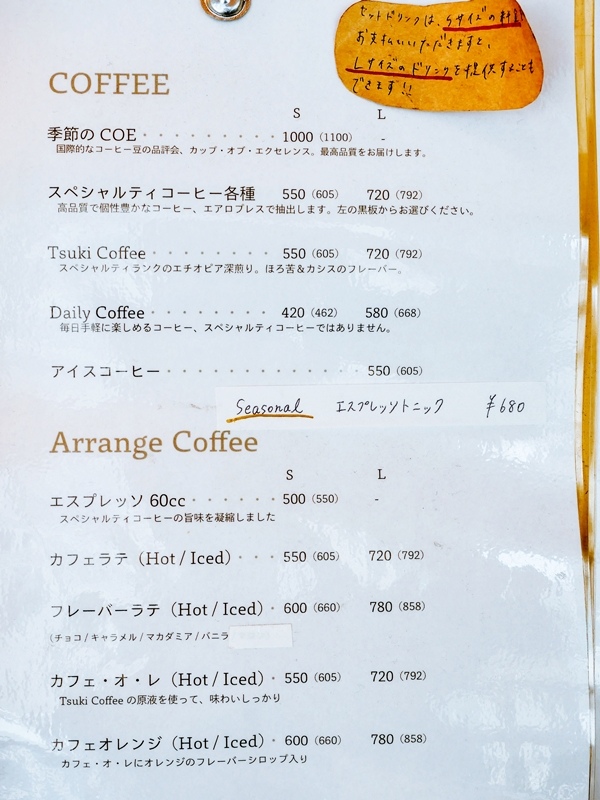 セットドリンクは、Sサイズの料金
お支払いいただきますと、
Lサイズのドリンクを提供することも
できます!!
COFFEE
S L
季節の COE 1000 (1100) -
国際的なコーヒー豆の品評会、カップ・オブ・エクセレンス。最高品質をお届けします。
スペシャルティコーヒー各種 550 (605) 720 (792)
高品質で個性豊かなコーヒー、エアロプレスで抽出します。左の黒板からお選びください。
Tsuki Coffee 550 (605) 720 (792)
スペシャルティランクのエチオピア深煎り。ほろ苦&カシスのフレーバー。
Daily Coffee 420 (462) 580 (668)
毎日手軽に楽しめるコーヒー、スペシャルティコーヒーではありません。
アイスコーヒー 550 (605)
Seasonal エスプレッソトニック ¥680
Arrange Coffee
S L
エスプレッソ 60cc 500 (550) -
スペシャルティコーヒーの旨味を凝縮しました
カフェラテ (Hot / Iced) 550 (605) 720 (792)
フレーバーラテ (Hot / Iced) 600 (660) 780 (858)
(チョコ / キャラメル / マカダミア / バニラ
カフェ・オ・レ (Hot / Iced) 550 (605) 720 (792)
Tsuki Coffee の原液を使って、味わいしっかり
カフェオレンジ (Hot / Iced) 600 (660) 780 (858)
カフェ・オ・レにオレンジのフレーバーシロップ入り